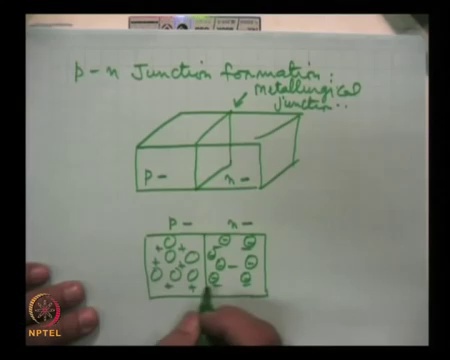 p - n Junction formation :
metallurgical
junction..
p -
n -
p -
n -
NPTEL